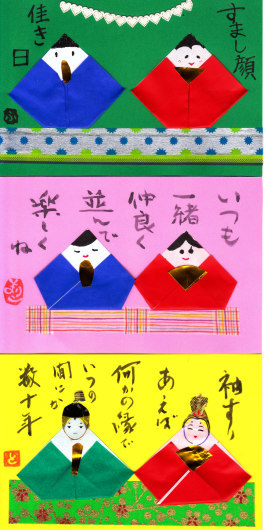 すまし顔
佳き
日
いつも
一緒
仲良く
並んで
楽しく
ね
袖すり
あえば
何かの縁で
いつの
間にか
数十年
と